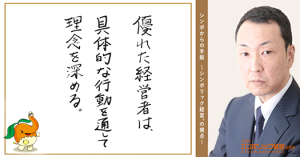 シンボからの手紙 ～シンボリック経営®の視点～
優れた経営者は、
具体的な行動を通して
理念を深める。